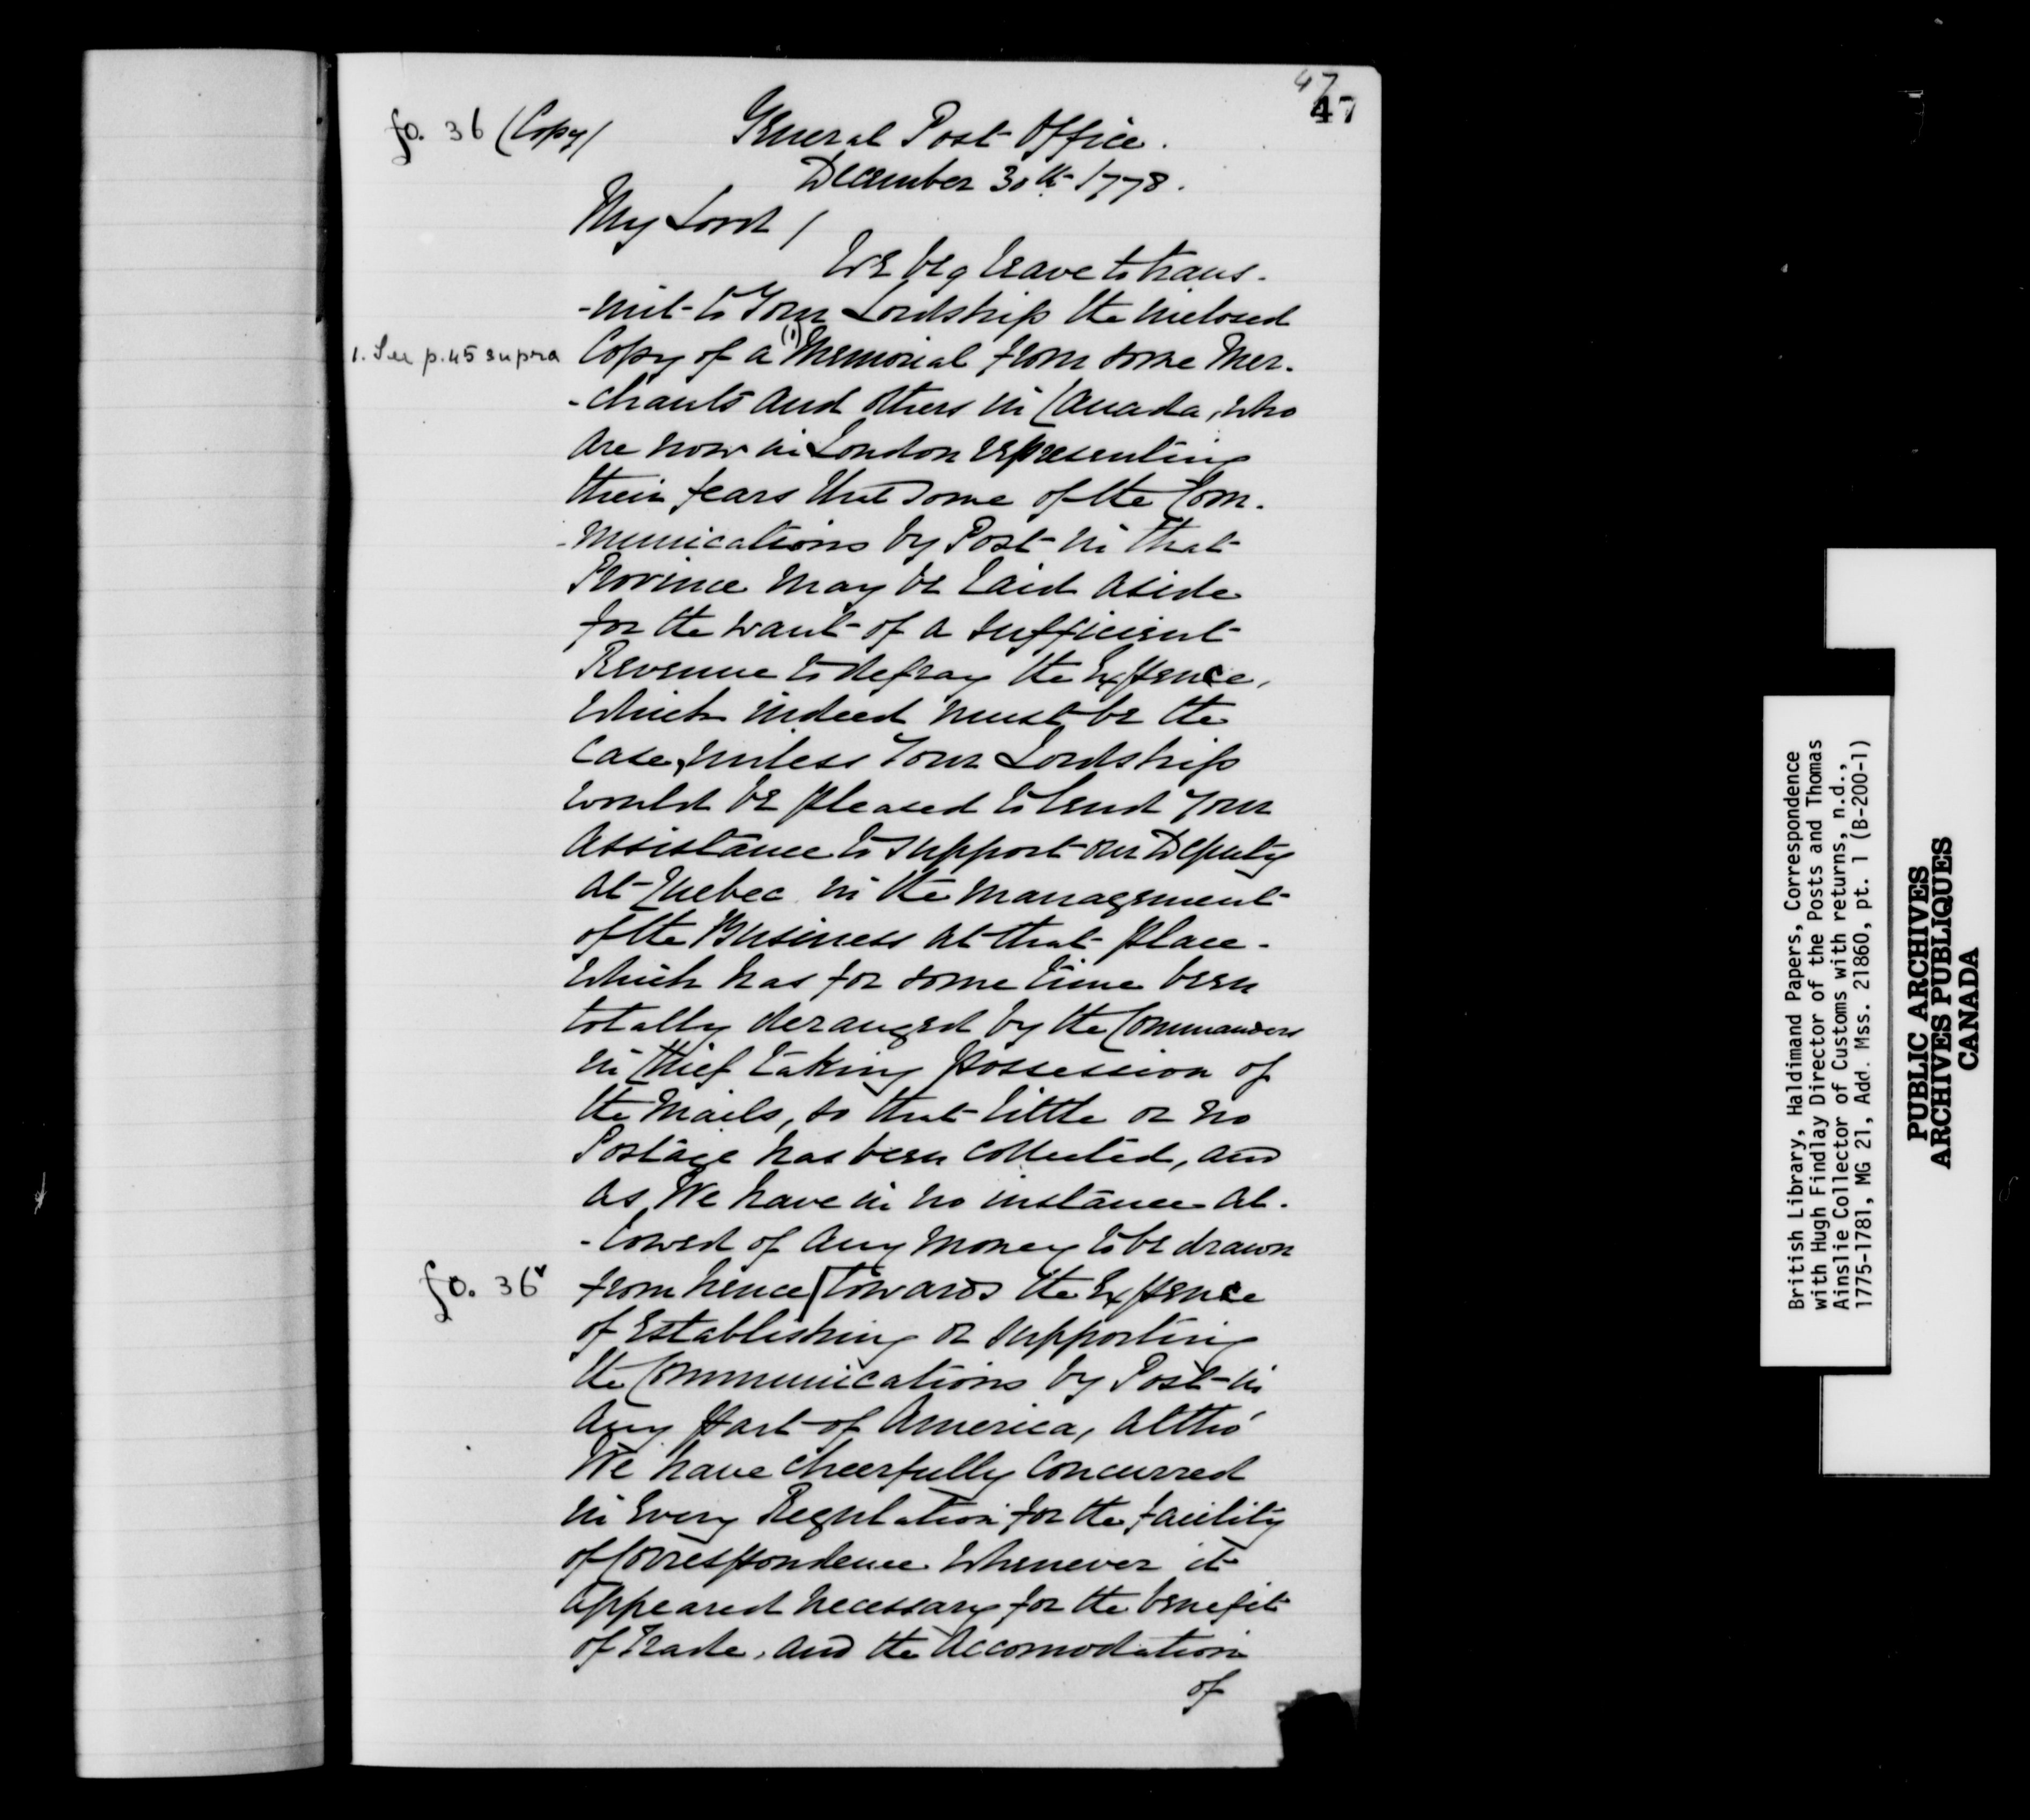 47
47
fo. 36 (Copy/
General Post Office.
December 30th 1778.
My Lord /
We beg leave to trans-
-mit to Your Lordship the inclosed
1. See p. 45 supra
Copy of a (1) Memorial from some Mer-
-chants and others in Canada, who
are now in London representing
their fears that some of the Com-
-munications by Post in that
Province may be laid aside
for the want of a sufficient
Revenue to defray the Expence,
which indeed must be the
case, unless Your Lordship
would be pleased to lend your
assistance to support our Deputy
at Quebec in the management
of the Business at that place.
which has for some time been
totally deranged by the Commanders
in Chief taking possession of
the Mails, so that little or no
Postage has been collected, and
as We have in no instance al-
-lowed of any money to be drawn
fo. 36v
from hence | towards the Expence
of establishing or supporting
the Communications by Post in
any part of America, altho'
We have cheerfully concurred
in every Regulation for the facility
of Correspondence whenever it
appeared necessary for the benefit
of Trade, and the Accomodation
of
British Library, Haldimand Papers, Correspondence
with Hugh Findlay Director of the Posts and Thomas
Ainslie Collector of Customs with returns, n.d.,
1775-1781, MG 21, Add. Mss. 21860, pt. 1 (B-200-1)
PUBLIC ARCHIVES
ARCHIVES PUBLIQUES
CANADA